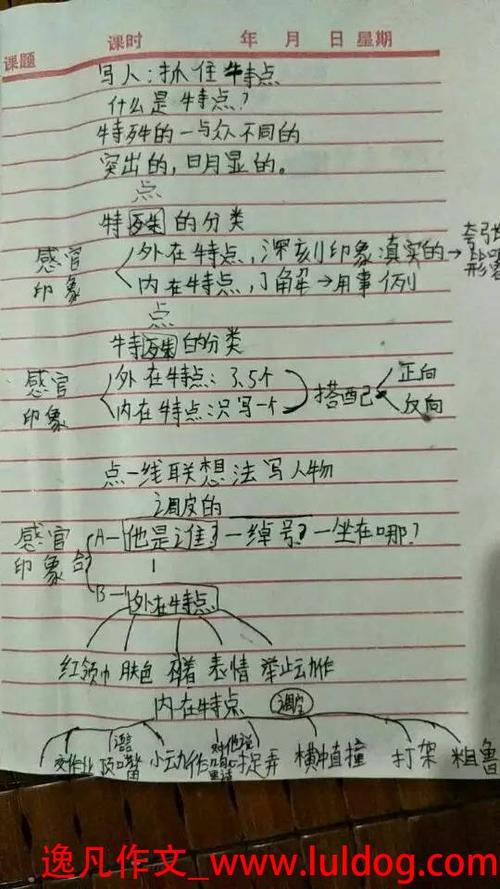 课题 课时 年 月 日 星期
写人：抓住特点
什么是特点？
特殊的一与众不同的
突出的，明显的。
点
特殊的分类
感官印象 外在特点，深刻印象 真实的→夸张 比喻 形容
内在特点，了解→用事例
点
特殊的分类
感官印象 外在特点：3.5个
内在特点：只写一个 搭配 正向
反向
点一线联想法写人物
调皮的
感官印象 A—他是谁？一绰号？一坐在哪？
B—外在特点
红领巾 肤色 表情 举止动作
内在特点 调皮
交作业 顶嘴 小动作 捉弄 横冲直撞 打架 粗鲁
逸凡作文_www.luldog.com